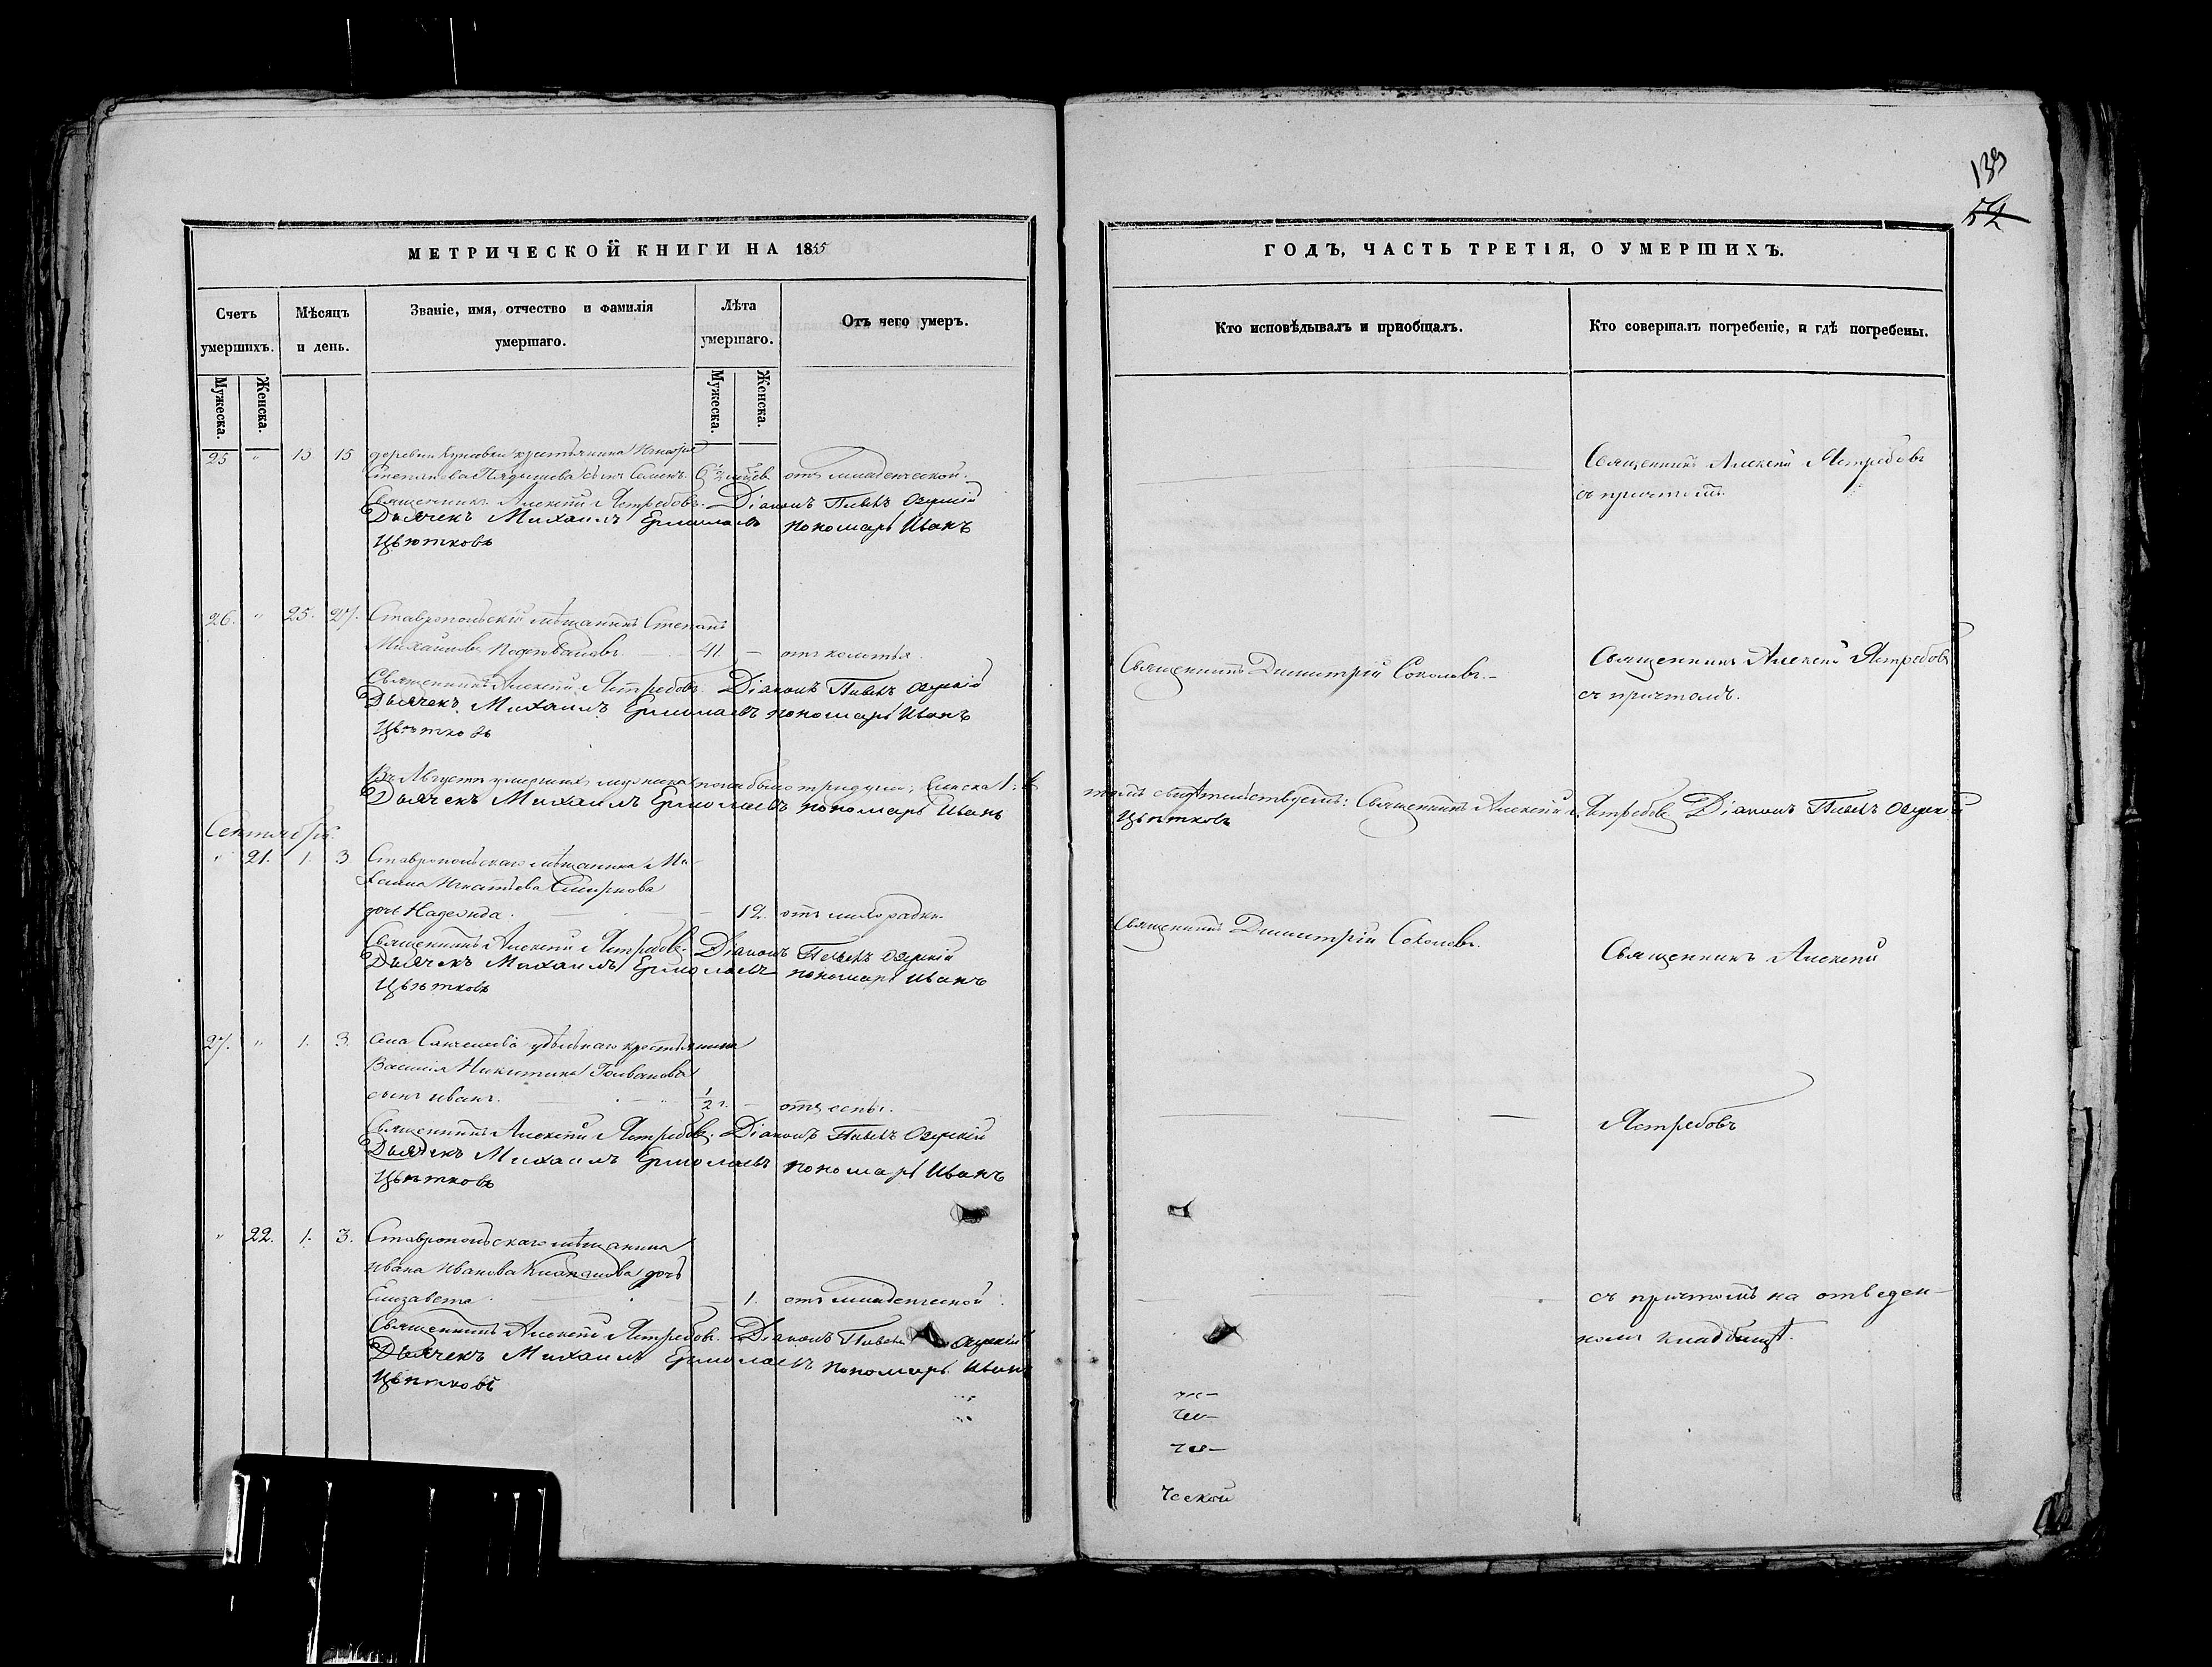 139
52
МЕТРИЧЕСКОЙ КНИГИ НА 1855
ГОДЪ, ЧАСТЬ ТРЕТІЯ, О УМЕРШИХЪ.
Счетъ умершихъ.
Мѣсяцъ и день.
Званіе, имя, отчество и фамилія умершаго.
Лѣта умершаго.
Отъ чего умеръ.
Кто исповѣдывалъ и пріобщалъ.
Кто совершалъ погребеніе, и гдѣ погребены.
Мужеска. Женска.
Мужеска. Женска.
25 " 13 15 деревни крестьянина
Степанова сынъ Семенъ. 6 1/2 отъ младенческой.
Священникъ Алексѣй Ястребовъ
съ причтомъ.
Священникъ Алексѣй Ястребовъ. Діаконъ Павелъ Озерскій
Дьячекъ Михаилъ Ермолаевъ пономарь Иванъ
Цвѣтковъ
26. " 25. 27. Ставропольскій мѣщанинъ Степанъ
Михайловъ 41 — отъ колотья.
Священникъ Димитрій Соколовъ.
Священникъ Алексѣй Ястребовъ
съ причтомъ.
Священникъ Алексѣй Ястребовъ. Діаконъ Павелъ Озерскій
Дьячекъ Михаилъ Ермолаевъ пономарь Иванъ
Цвѣтковъ
Въ Августѣ умершихъ мужеска пола было три души, женска 1.
свидѣтельствуемъ: Священникъ Алексѣй Ястребовъ Діаконъ Павелъ Озерскій
Дьячекъ Михаилъ Ермолаевъ пономарь Иванъ
Цвѣтковъ
Сентябрь.
" 21. 1. 3. Ставропольскаго мѣщанина Ми-
хаила Игнатьева Смирнова
дочь Надежда. 12. отъ лихорадки.
Священникъ Димитрій Соколовъ.
Священникъ Алексѣй
Священникъ Алексѣй Ястребовъ. Діаконъ Павелъ Озерскій
Дьячекъ Михаилъ Ермолаевъ пономарь Иванъ
Цвѣтковъ
27. " 1. 3. села удѣльнаго крестьянина
Василія Никитина
сынъ Иванъ. 1/2 г. — отъ оспы.
Ястребовъ
Священникъ Алексѣй Ястребовъ. Діаконъ Павелъ Озерскій
Дьячекъ Михаилъ Ермолаевъ пономарь Иванъ
Цвѣтковъ
" 22. 1. 3. Ставропольскаго мѣщанина
Ивана Иванова дочь
Елизавета 1. отъ младенческой.
съ причтомъ на отведен-
номъ кладбищѣ.
Священникъ Алексѣй Ястребовъ. Діаконъ Павелъ Озерскій
Дьячекъ Михаилъ Ермолаевъ пономарь Иванъ
Цвѣтковъ
ческой